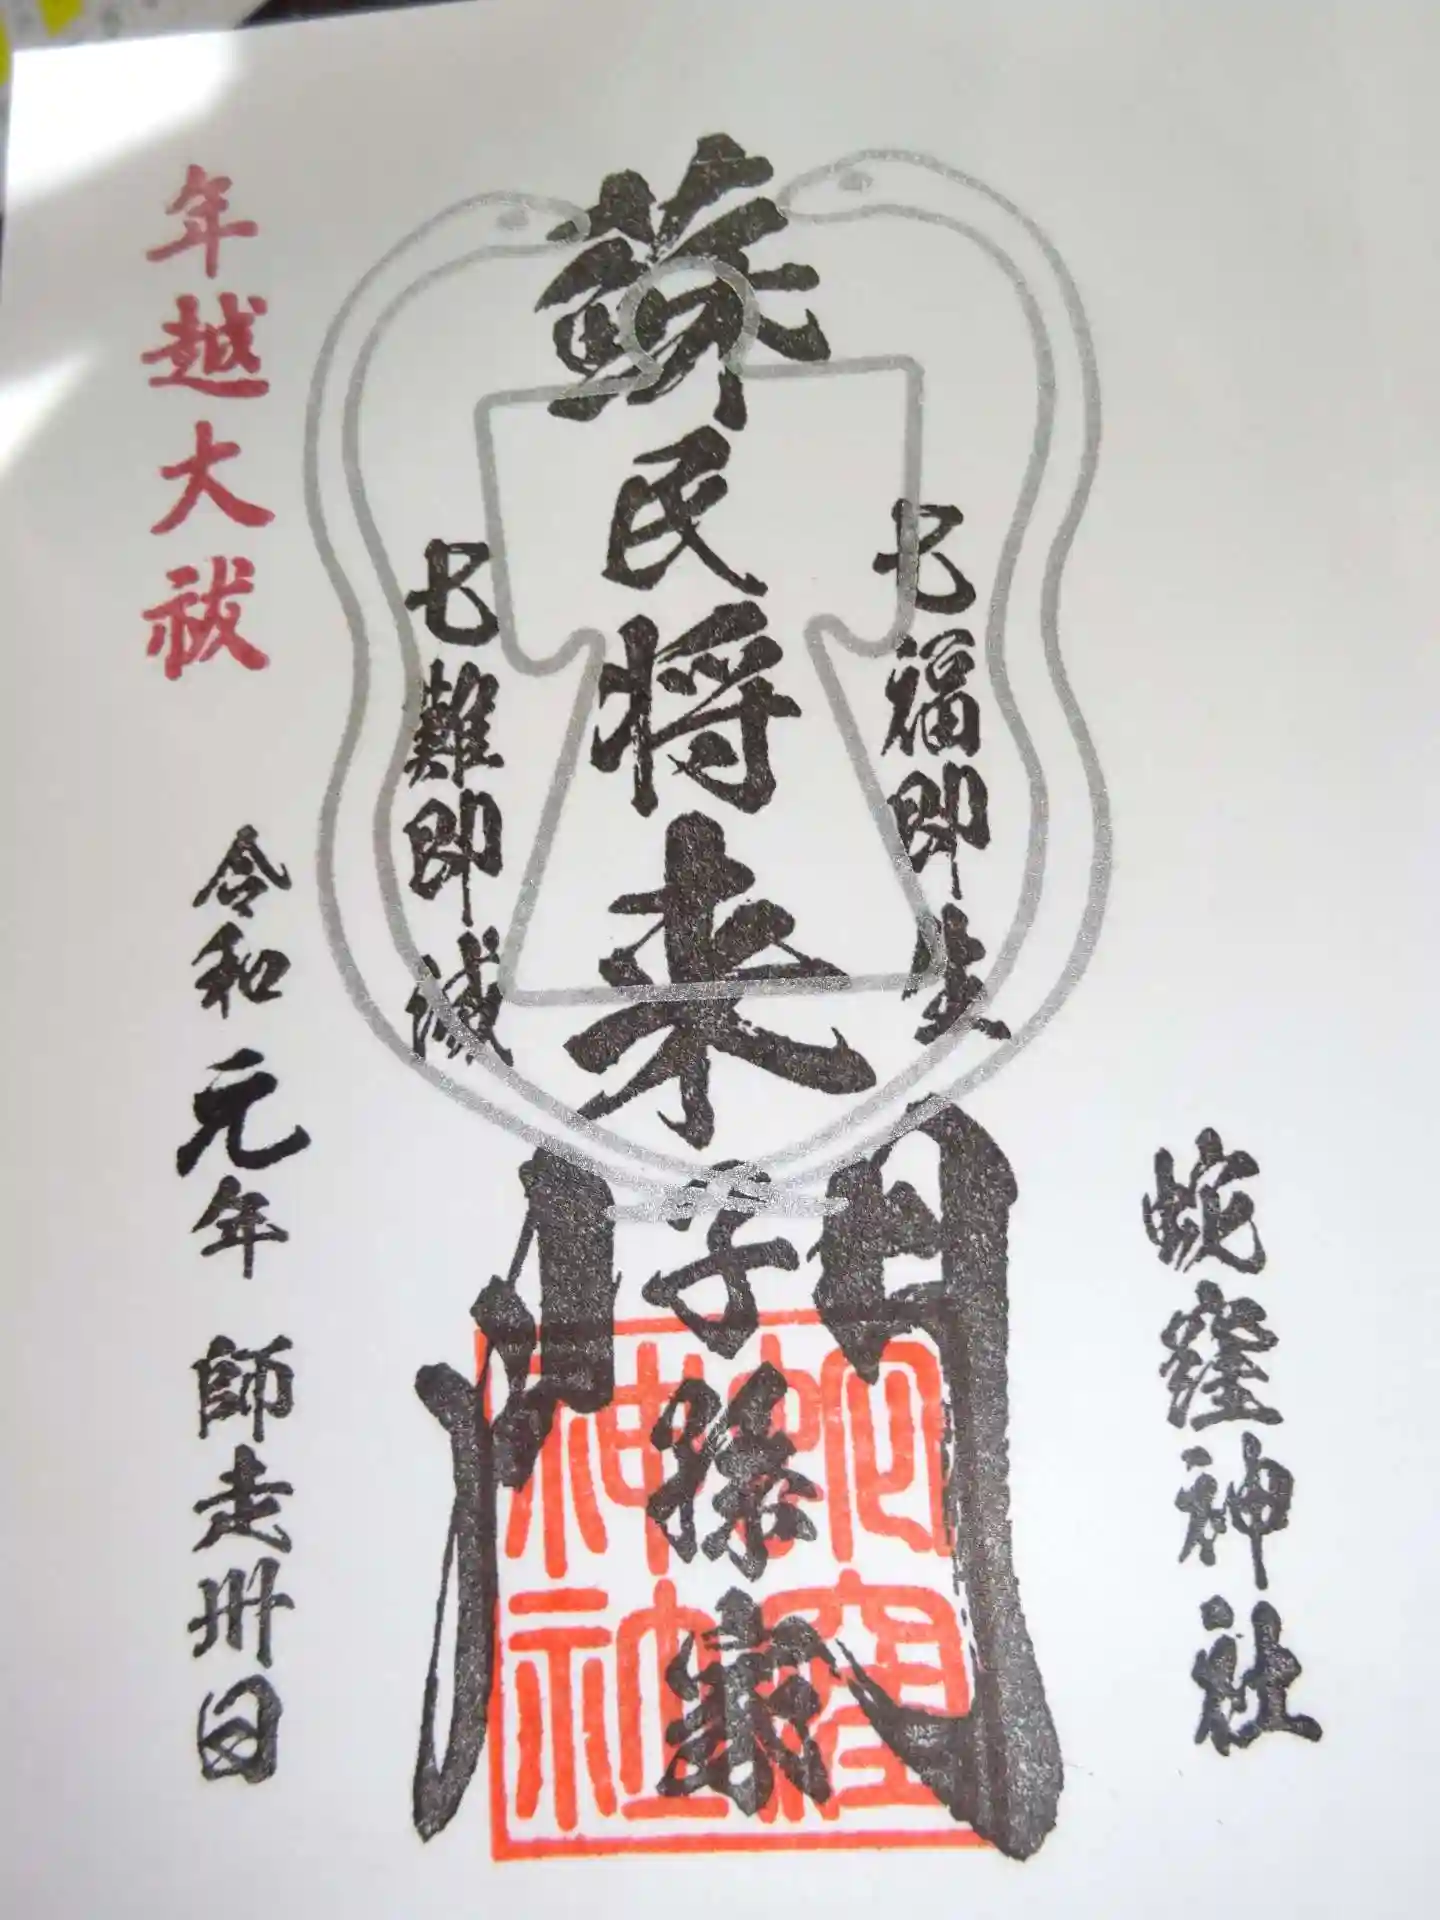 蛇窪神社
七福即生
蘇民将来子孫家門
七難即滅
年越大祓
令和元年 師走卅日
蛇窪神社